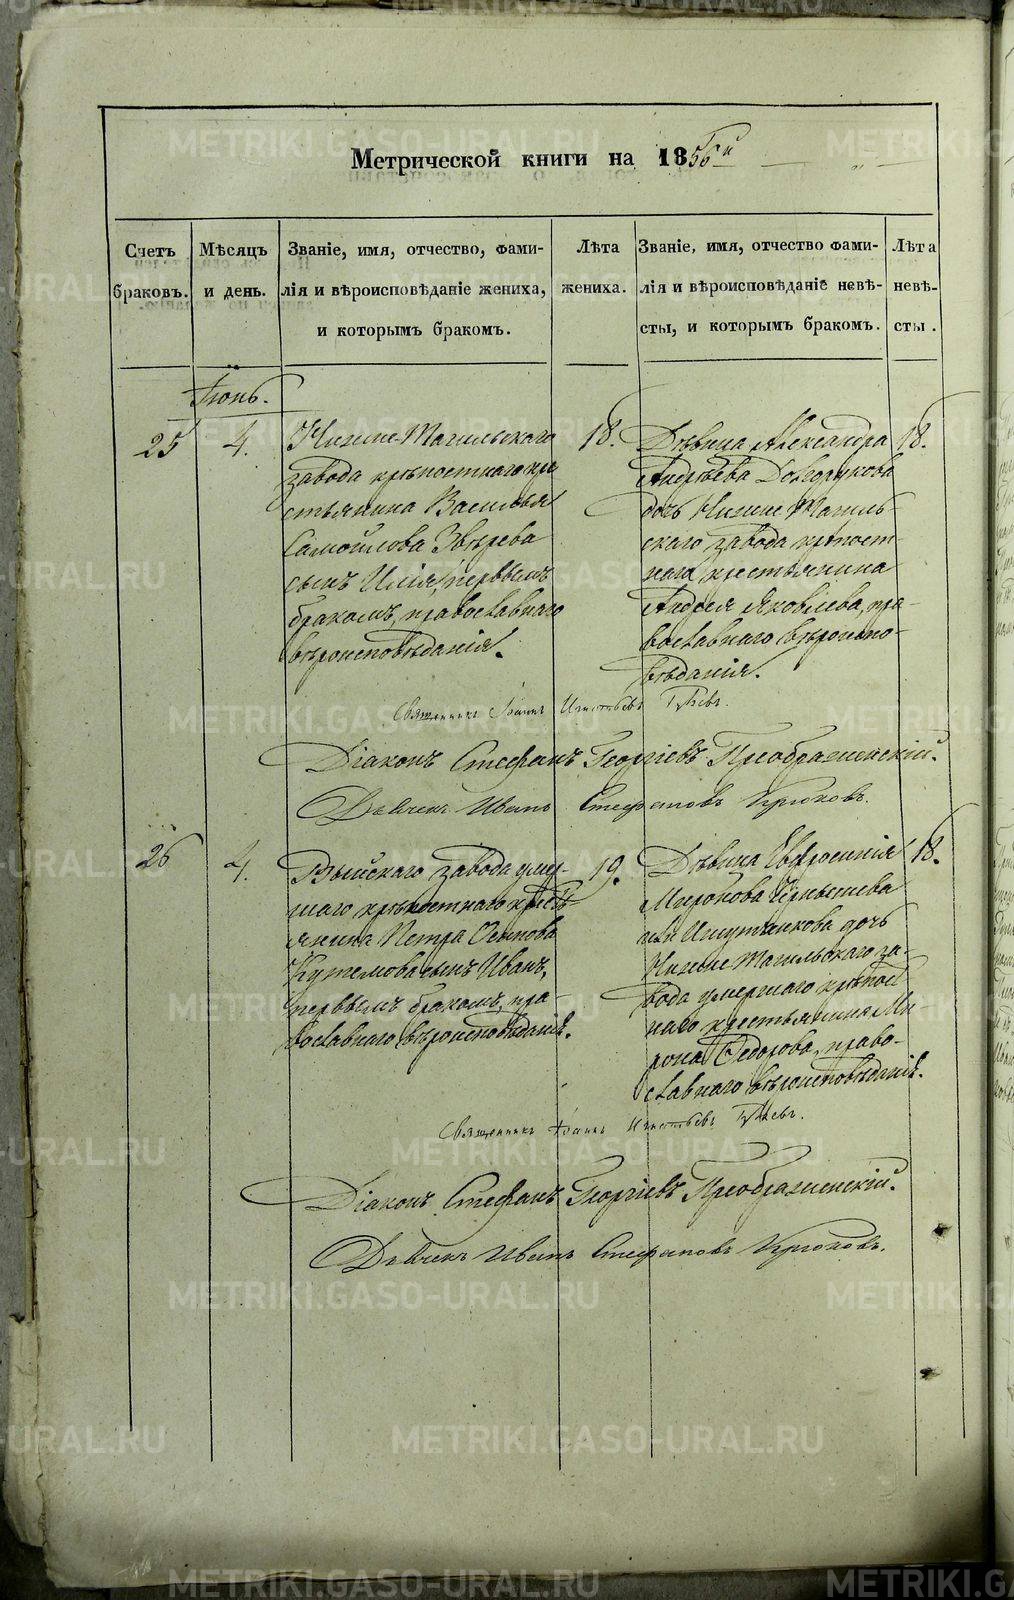 METRIKI.GASO-URAL.RU
Метрической книги на 1856й
Счетъ браковъ.
Мѣсяцъ и день.
Званіе, имя, отчество, фами-
лія и вѣроисповѣданіе жениха,
и которымъ бракомъ.
Лѣта жениха.
Званіе, имя, отчество фами-
лія и вѣроисповѣданіе невѣ-
сты, и которымъ бракомъ.
Лѣта невѣ-
сты.
Іюнь.
25
4.
Нижне-Тагильскаго
завода крѣпостнаго кре
стьянина Василья
Самойлова Звѣрева
сынъ Илія, первымъ
бракомъ, православнаго
вѣроисповѣданія.
18.
Дѣвица Александра
Андрѣева
дочь Нижне Тагиль-
скаго завода крѣпост-
наго крестьянина
Андрея Яковлева, пра-
вославнаго вѣроиспо-
вѣданія.
18.
Священникъ Іоаннъ Игнатьевъ
Діаконъ Стефанъ Георгіевъ Преображенскій.
Дьячекъ Иванъ Стефановъ Крюковъ.
26
4.
Выйскаго завода умер-
шаго крѣпостнаго кресть
янина Петра Осипова
сынъ Иванъ,
первымъ бракомъ, пра
вославнаго вѣроисповѣданія.
19.
Дѣвица Евфросинія
Миронова
дочь
Нижне Тагильскаго за-
вода умершаго крѣпост
наго крестьянина Ми
рона Ѳедорова, право-
славнаго вѣроисповѣданія.
18.
Священникъ Іоаннъ Игнатьевъ
Діаконъ Стефанъ Георгіевъ Преображенскій.
Дьячекъ Иванъ Стефановъ Крюковъ.